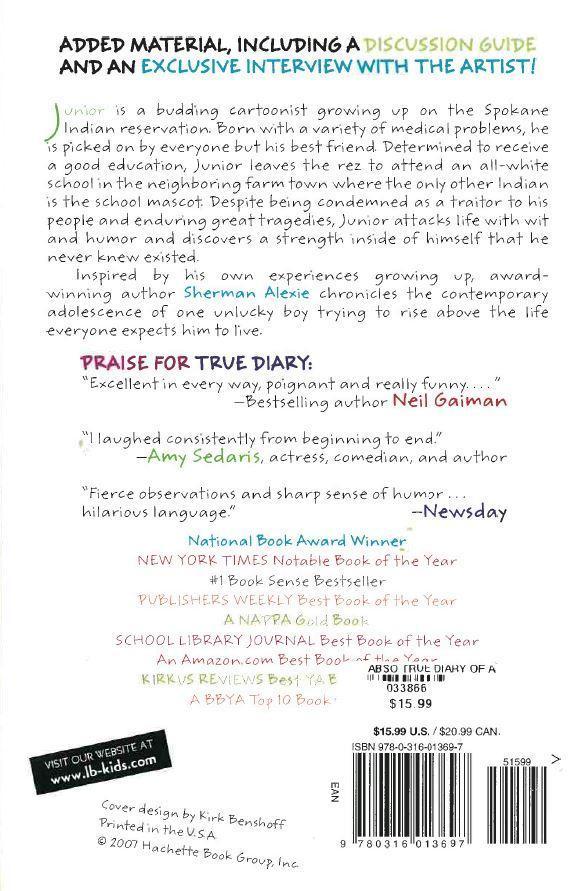 ADDED MATERIAL, INCLUDING A DISCUSSION GUIDE
AND AN EXCLUSIVE INTERVIEW WITH THE ARTIST!
Junior is a budding cartoonist growing up on the Spokane
Indian reservation. Born with a variety of medical problems, he
is picked on by everyone but his best friend. Determined to receive
a good education, Junior leaves the rez to attend an all-white
school in the neighboring farm town where the only other Indian
is the school mascot. Despite being condemned as a traitor to his
people and enduring great tragedies, Junior attacks life with wit
and humor and discovers a strength inside of himself that he
never knew existed.
Inspired by his own experiences growing up, award-
winning author Sherman Alexie chronicles the contemporary
adolescence of one unlucky boy trying to rise above the life
everyone expects him to live.
PRAISE FOR TRUE DIARY:
"Excellent in every way, poignant and really funny. . . ."
—Bestselling author Neil Gaiman
"I laughed consistently from beginning to end."
—Amy Sedaris, actress, comedian, and author
"Fierce observations and sharp sense of humor . . .
hilarious language."
—Newsday
National Book Award Winner
NEW YORK TIMES Notable Book of the Year
#1 Book Sense Bestseller
PUBLISHERS WEEKLY Best Book of the Year
A NAPPA Gold Book
SCHOOL LIBRARY JOURNAL Best Book of the Year
An Amazon.com Best Book of the Year
KIRKUS REVIEWS Best YA B
A BBYA Top 10 Book
ABSO TRUE DIARY OF A
033866
$15.99
$15.99 U.S. / $20.99 CAN.
ISBN 978-0-316-01369-7
51599
>
EAN
9 780316 013697
VISIT OUR WEBSITE AT
www.lb-kids.com
Cover design by Kirk Benshoff
Printed in the U.S.A.
© 2007 Hachette Book Group, Inc.